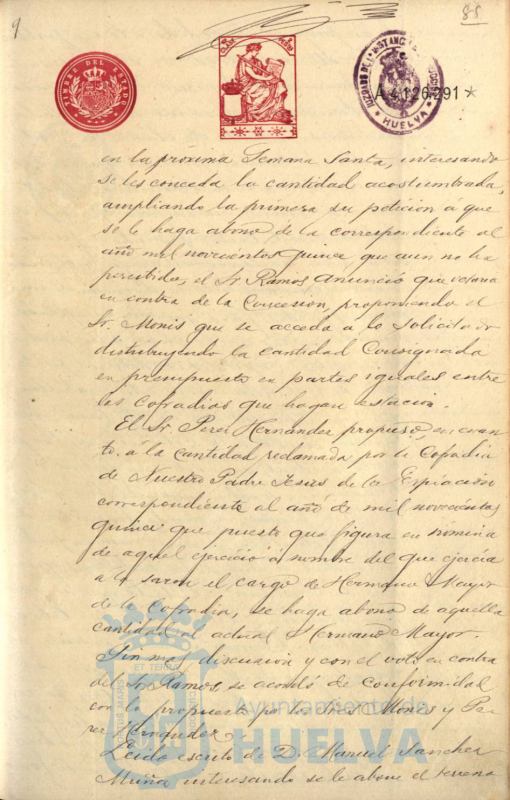 9
88
TIMBRE DEL ESTADO
A4.126.291*
HUELVA
en la próxima Semana Santa, interesando
se les conceda la cantidad acostumbrada,
ampliando la primera su petición á que
se le haga abono de la correspondiente al
año mil novecientos quince que aun no ha
percibido, el Sr. Ramos anunció que votaria
en contra de la Concesion, proponiendo el
Sr. Monis que se acceda a lo solicitado
distribuyendo la cantidad Consignada
en presupuesto en partes iguales entre
las Cofradias que hagan estación.
El Sr. Perez Hernandez propuso en cuan
to á la cantidad reclamada por la Cofradia
de Nuestro Padre Jesus de la Expiación
correspondiente al año de mil novecientos
quince que puesto que figura en nómina
de aquel ejercicio á nombre del que ejercia
a la sazon el cargo de Hermano Mayor
de la Cofradia, se haga abono de aquella
cantidad al actual Hermano Mayor.
Sin mas discusion y con el voto en contra
del Sr. Ramos, se acordó de conformidad
con lo propuesto por los Sres. Monis y Pe
rez Hernandez.
Leido escrito de D. Manuel Sanchez
Muña interesando se le abone el terreno
Ayuntamiento de
HUELVA